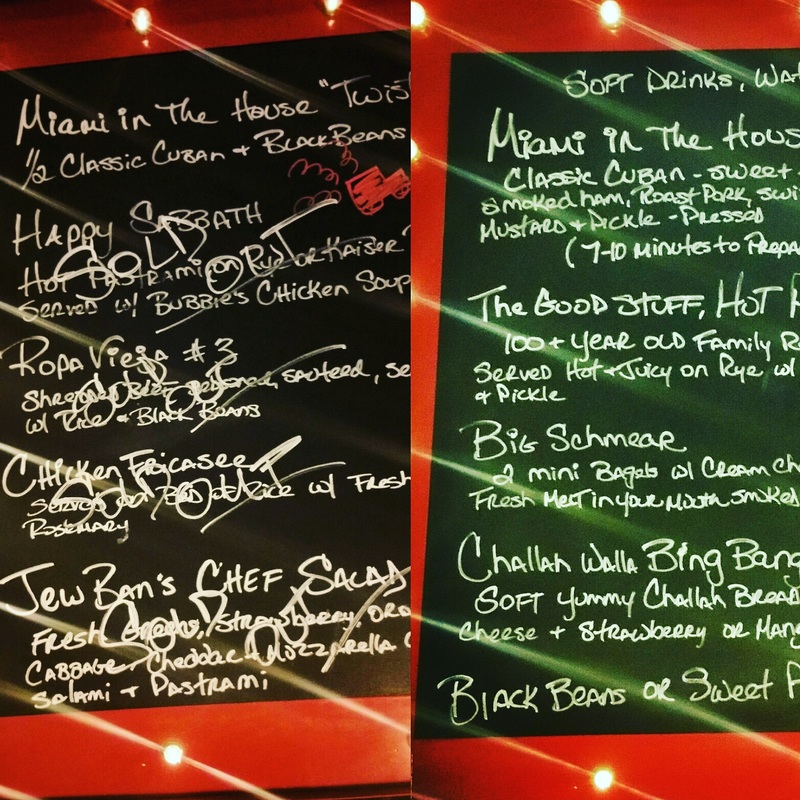 Miami in The House "Twist
1/2 Classic Cuban + Black Beans
Happy Sabbath
Hot Pastrami on Rye or Kaiser
Served w/ Bubbie's Chicken Soup
SOLD OUT
Ropa Vieja #3
Shredded Beef seasoned, sauteed, se
w/ Rice + Black Beans
SOLD OUT
Chicken Fricasee
Served on Bed of Rice w/ Fresh
Rosemary
SOLD OUT
Jew Ban's Chef Salad
Fresh Greens, Strawberry, Ora
Cabbage, Cheddar + Mozzarella C
Salami + Pastrami
SOLD OUT
Soft Drinks, Wat
Miami in The Hous
Classic Cuban - sweet +
smoked ham, Roast Pork, swi
Mustard + Pickle - Pressed
(7-10 minutes to Prepa
The Good Stuff, Hot P
100+ year old Family R
Served Hot + Juicy on Rye w/
+ Pickle
Big Schmear
2 mini Bagels w/ Cream Ch
Fresh Melt in your Mouth smoked
Challah Walla Bing Bang
Soft yummy Challah Bread
Cheese + Strawberry or Mang
Black Beans or Sweet P